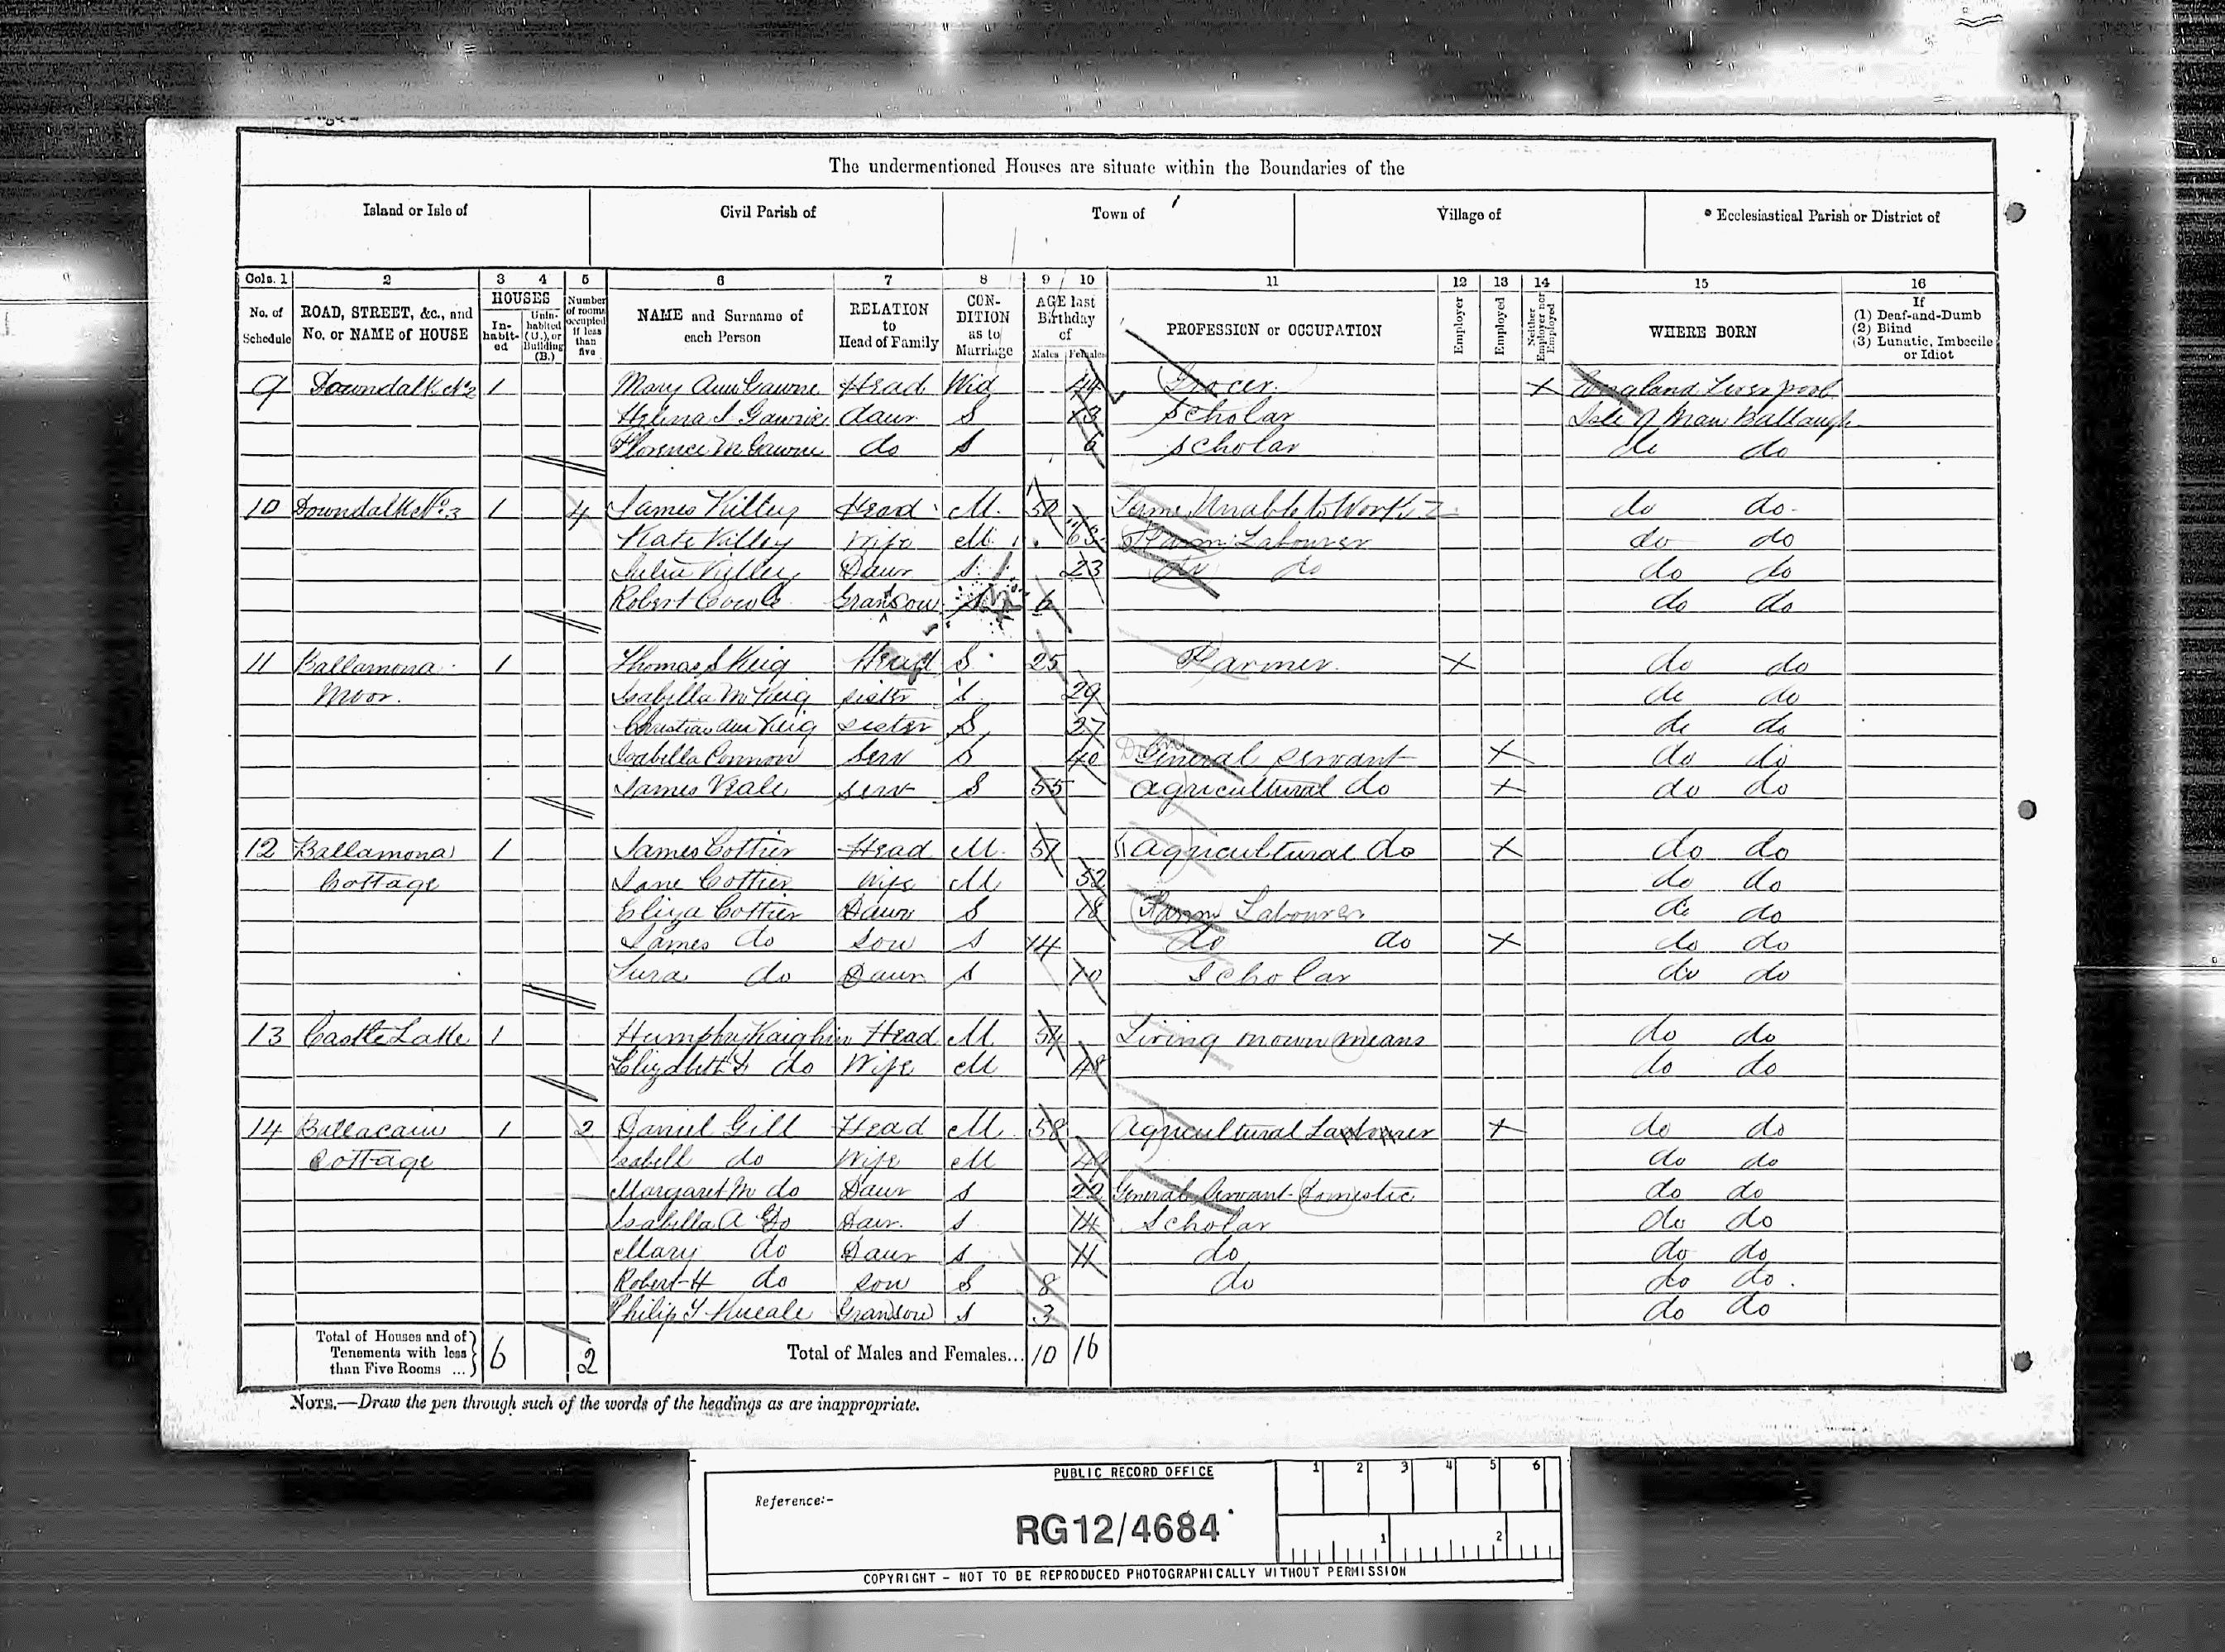 The undermentioned Houses are situate within the Boundaries of the
Island or Isle of Civil Parish of Town of Village of Ecclesiastical Parish or District of
Cols. 1 2 3 4 5 6 7 8 9 10 11 12 13 14 15 16
No. of Schedule ROAD, STREET, &c., and No. or NAME of HOUSE HOUSES Inhabited Uninhabited (U.), or Building (B.) Number of rooms occupied if less than five NAME and Surname of each Person RELATION to Head of Family CONDITION as to Marriage AGE last Birthday of Males Females PROFESSION or OCCUPATION Employer Employed Neither Employer nor Employed WHERE BORN If (1) Deaf-and-Dumb (2) Blind (3) Lunatic, Imbecile or Idiot
9 Doundalk No 2 1 Mary Ann Gawne Head Wid 44 Grocer X England Liverpool
Helena I Gawne daur S 13 Scholar Isle of Man Ballaugh
Florence M Gawne do S 6 Scholar do do
10 Doundalk No. 3 1 4 James Killey Head M. 50 Unable to Work do do
Kate Killey Wife M 63 Farm Labourer do do
Julia Killey Daur S 23 do do do do
Robert Cowle Granson S 6 do do
11 Ballamona 1 Thomas S Keig Head S 25 Farmer X do do
Moor. Isabella M Keig sister S 29 do do
Christian Ann Keig sister S 27 do do
Isabella Connon Serv S 40 General servant X do do
James Keale serv S 55 agricultural do X do do
12 Ballamona 1 James Cottier Head M 51 agricultural do X do do
Cottage Jane Cottier Wife M 52 do do
Eliza Cottier Daur S 18 Farm Labourer do do
James do son S 14 do do X do do
do Daur S 10 Scholar do do
13 Castle Lake 1 Humphry Kaighin Head M 54 Living on own means do do
Elizabeth do Wife M 48 do do
14 Ballacain 1 2 Daniel Gill Head M 58 Agricultural Labourer X do do
Cottage Isabell do Wife M 49 do do
Margaret M do Daur S 22 General Servant Domestic do do
Isabella A do Daur. S 14 Scholar do do
Mary do Daur S 11 do do do
Robert H do son S 8 do do do
Philip T Kneale Granson S 3 do do
Total of Houses and of Tenements with less than Five Rooms ... 6 2 Total of Males and Females... 10 16
NOTE.—Draw the pen through such of the words of the headings as are inappropriate.
PUBLIC RECORD OFFICE 1 2 3 4 5 6
Reference:-
RG12/4684
1 2
COPYRIGHT - NOT TO BE REPRODUCED PHOTOGRAPHICALLY WITHOUT PERMISSION